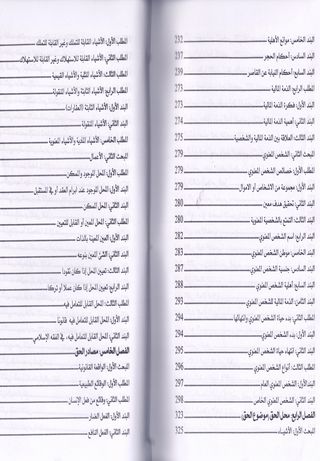 البند الخامس: موانع الأهلية 232
البند السادس: أحكام الحجر 237
البند السابع: أحكام النيابة عن القاصر 239
المطلب الرابع: الذمة المالية 273
البند الأول: فكرة الذمة المالية 273
البند الثاني: أهمية الذمة المالية 274
البند الثالث: العلاقة بين الذمة المالية والشخصية 275
المبحث الثاني: الشخص المعنوي 279
المطلب الأول: خصائص الشخص المعنوي 279
البند الأول: مجموعة من الأشخاص أو الأموال 279
البند الثاني: تحقيق هدف معين 280
البند الثالث: التمتع بالشخصية المعنوية 280
البند الرابع: اسم الشخص المعنوي 282
البند الخامس: موطن الشخص المعنوي 283
البند السادس: جنسية الشخص المعنوي 287
البند السابع: أهلية الشخص المعنوي
البند الثامن: الذمة المالية للشخص المعنوي 293
المطلب الثاني: بدء حياة الشخص المعنوي وانتهائها 294
البند الأول: بدء الشخص المعنوي 294
البند الثاني: انتهاء حياة الشخص المعنوي 295
المطلب الثالث: أنواع الشخص المعنوي 296
البند الأول: الشخص المعنوي العام 297
البند الثاني: الشخص المعنوي الخاص 298
الفصل الرابع: محل الحق (موضوع الحق) 323
المبحث الأول: الأشياء 325
المطلب الأول: الأشياء القابلة للتملك وغير القابلة للتملك
المطلب الثاني: الأشياء القابلة للاستهلاك وغير القابلة للاستهلاك
المطلب الثالث: الأشياء المثلية والأشياء القيمية
المطلب الرابع: الأشياء الثابتة والأشياء المنقولة
البند الأول: الأشياء الثابتة (العقارات)
البند الثاني: الأشياء المنقولة
المطلب الخامس: الأشياء المادية والأشياء المعنوية
المبحث الثاني: الأعمال
المطلب الأول: المحل الموجود والممكن
البند الأول: المحل الموجود عند إبرام العقد أو في المستقبل
البند الثاني: المحل الممكن
المطلب الثاني: المحل المعين أو القابل للتعيين
البند الأول: المحل المعينة بالذات
البند الثاني: الشيء المعين بنوعه
البند الثالث: تعيين المحل إذا كان نقودا
البند الرابع: تعيين المحل إذا كان عملا أو تركا
المطلب الثالث: المحل القابل للتعامل فيه
البند الأول: المحل القابل للتعامل فيه قانونا
البند الثاني: المحل القابل للتعامل فيه، في الفقه الإسلامي
الفصل الخامس: مصادر الحق
المبحث الأول: الواقعة القانونية
المطلب الأول: الوقائع الطبيعية
المطلب الثاني: وقائع من فعل الإنسان
البند الأول: الفعل الضار
البند الثاني: الفعل النافع